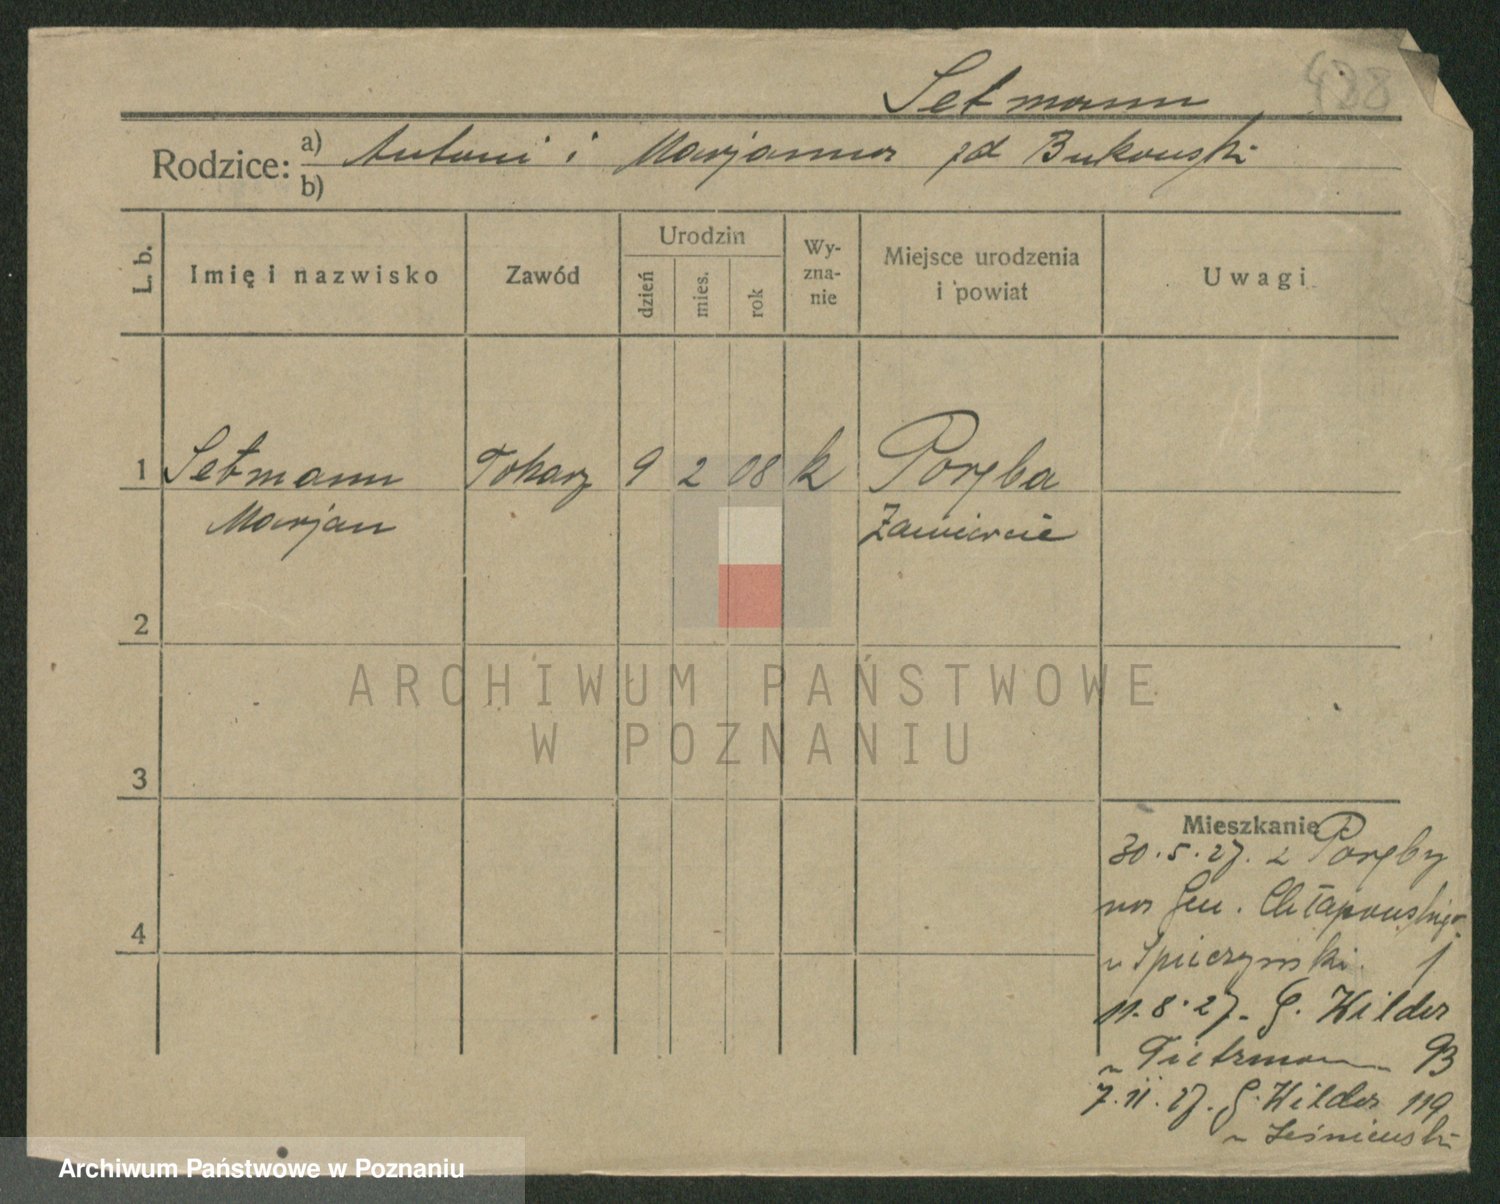 Setmann
488
Rodzice: a) Antoni i Marjanna zd Bukowski
b)
L. b. Imię i nazwisko Zawód Urodzin dzień mies. rok Wy-zna-nie Miejsce urodzenia i powiat Uwagi
1 Setmann Tokarz 9 2 08 k Poręba
Marjan Zawiercie
2
ARCHIWUM PAŃSTWOWE
W POZNANIU
3
Mieszkanie
30.5.27. z Poręby
na Gen. Chłapowskiego
u Spiczyński 1
4
11.8.27. G. Wilda
u Tietzman 93
7.11.27. G. Wilda 119
u Leśniewski
Archiwum Państwowe w Poznaniu